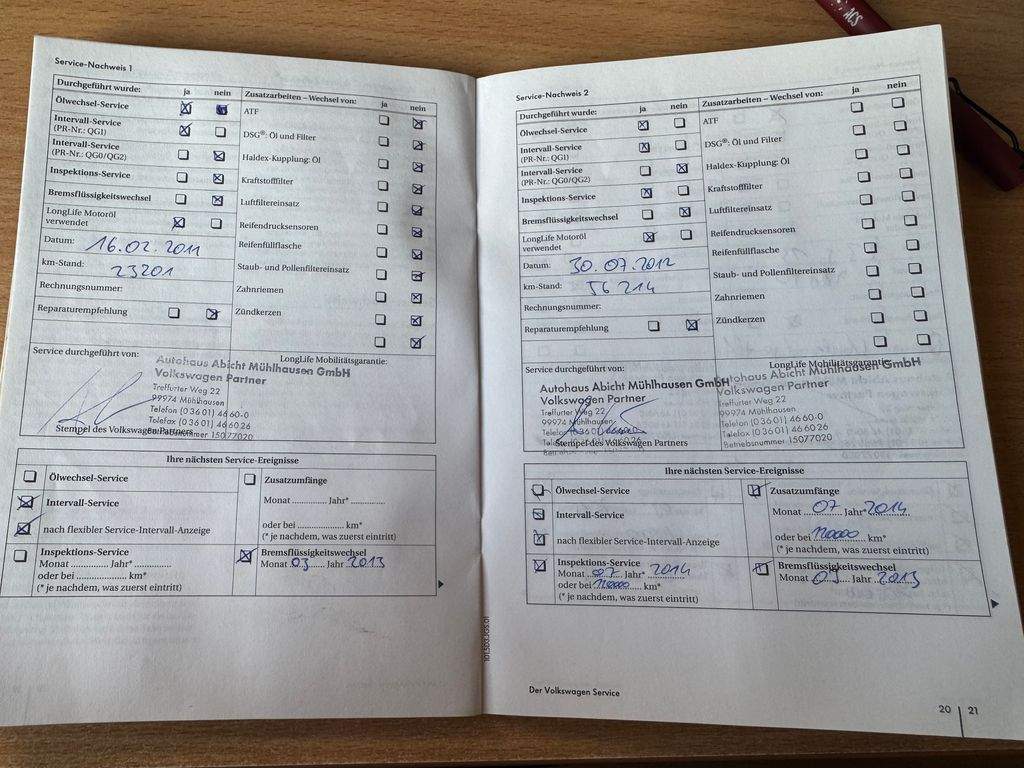 ACS
Service-Nachweis 1
Durchgeführt wurde: ja nein
Ölwechsel-Service
Intervall-Service
(PR-Nr.: QG1)
Intervall-Service
(PR-Nr.: QG0/QG2)
Inspektions-Service
Bremsflüssigkeitswechsel
LongLife Motoröl
verwendet
Datum: 16.02.2011
km-Stand: 23201
Rechnungsnummer:
Reparaturempfehlung
Zusatzarbeiten – Wechsel von: ja nein
ATF
DSG®: Öl und Filter
Haldex-Kupplung: Öl
Kraftstofffilter
Luftfiltereinsatz
Reifendrucksensoren
Reifenfüllflasche
Staub- und Pollenfiltereinsatz
Zahnriemen
Zündkerzen
Service durchgeführt von:
LongLife Mobilitätsgarantie:
Autohaus Abicht Mühlhausen GmbH
Volkswagen Partner
Treffurter Weg 22
99974 Mühlhausen
Telefon (0 36 01) 46 60-0
Telefax (0 36 01) 46 60 26
Betriebsnummer 15077020
Stempel des Volkswagen Partners
Ihre nächsten Service-Ereignisse
Ölwechsel-Service
Intervall-Service
nach flexibler Service-Intervall-Anzeige
Inspektions-Service
Monat ............ Jahr* ............
oder bei ............ km*
(* je nachdem, was zuerst eintritt)
Zusatzumfänge
Monat ............ Jahr* ............
oder bei ............ km*
(* je nachdem, was zuerst eintritt)
Bremsflüssigkeitswechsel
Monat 03 Jahr 2013
101.5D3.JGS.01
Service-Nachweis 2
Durchgeführt wurde: ja nein
Ölwechsel-Service
Intervall-Service
(PR-Nr.: QG1)
Intervall-Service
(PR-Nr.: QG0/QG2)
Inspektions-Service
Bremsflüssigkeitswechsel
LongLife Motoröl
verwendet
Datum: 30.07.2012
km-Stand: 56 214
Rechnungsnummer:
Reparaturempfehlung
Zusatzarbeiten – Wechsel von: ja nein
ATF
DSG®: Öl und Filter
Haldex-Kupplung: Öl
Kraftstofffilter
Luftfiltereinsatz
Reifendrucksensoren
Reifenfüllflasche
Staub- und Pollenfiltereinsatz
Zahnriemen
Zündkerzen
Service durchgeführt von:
Autohaus Abicht Mühlhausen GmbH
Volkswagen Partner
Treffurter Weg 22
99974 Mühlhausen
Stempel des Volkswagen Partners
LongLife Mobilitätsgarantie:
Autohaus Abicht Mühlhausen GmbH
Volkswagen Partner
Treffurter Weg 22
99974 Mühlhausen
Telefon (0 36 01) 46 60-0
Telefax (0 36 01) 46 60 26
Betriebsnummer 15077020
Ihre nächsten Service-Ereignisse
Ölwechsel-Service
Intervall-Service
nach flexibler Service-Intervall-Anzeige
Inspektions-Service
Monat 07 Jahr* 2014
oder bei 120000 km*
(* je nachdem, was zuerst eintritt)
Zusatzumfänge
Monat 07 Jahr* 2014
oder bei 120000 km*
(* je nachdem, was zuerst eintritt)
Bremsflüssigkeitswechsel
Monat 03 Jahr 2013
Der Volkswagen Service
20 | 21